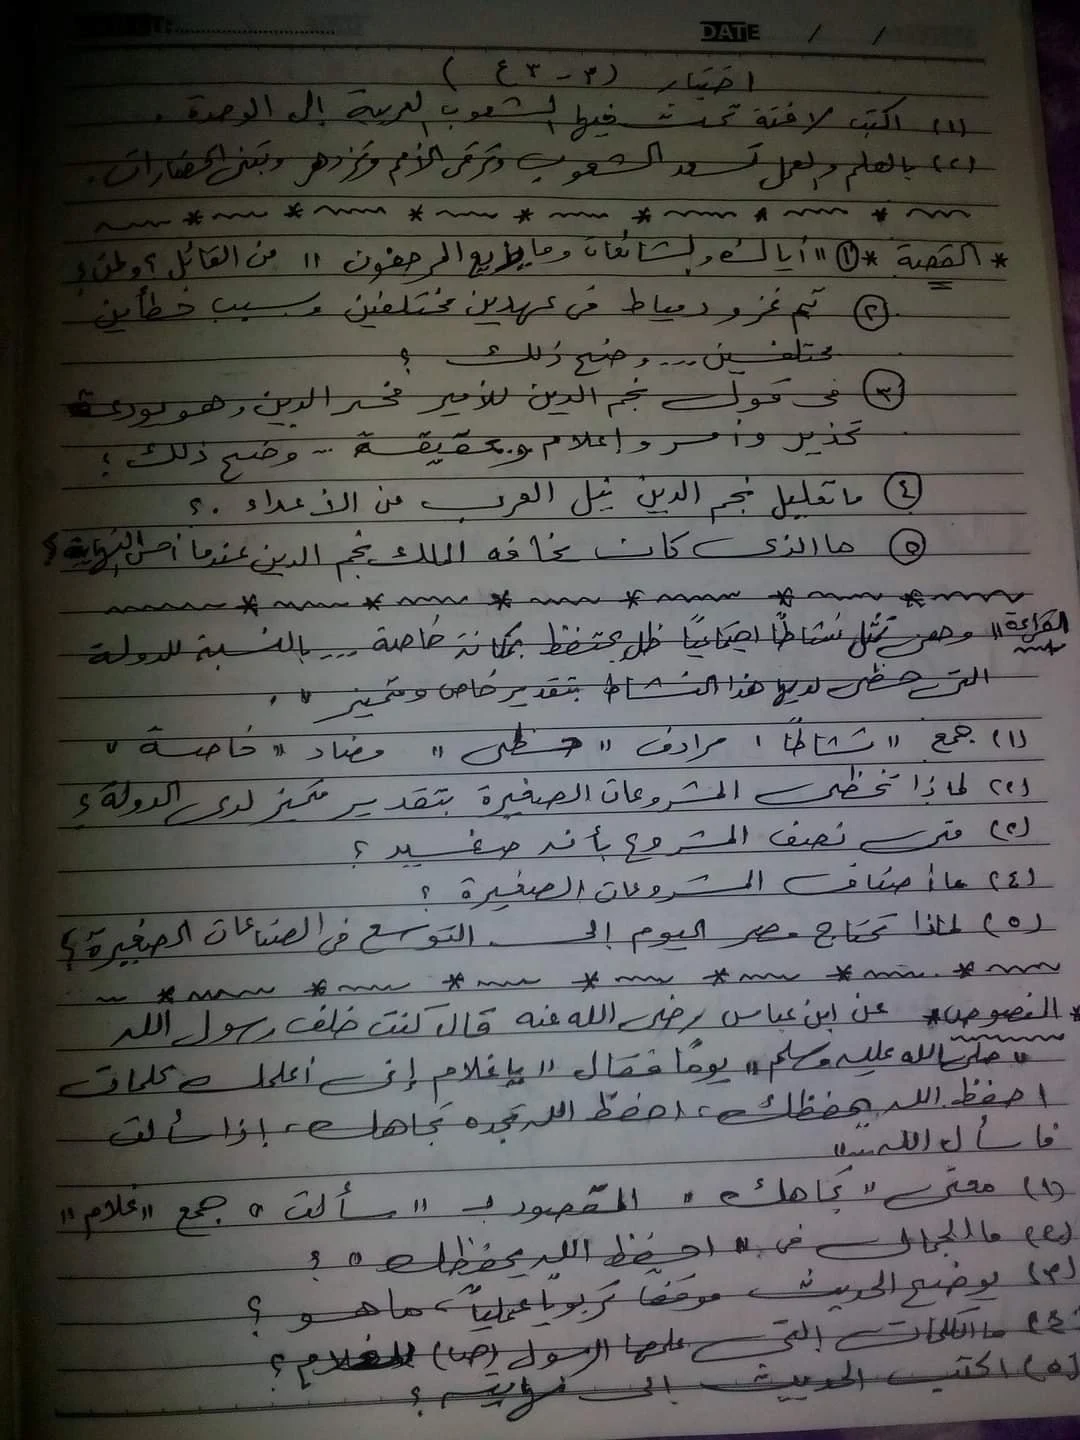 DATE / /
اختبار (٣-٣٤)
(١) اكتب لافتة تحث فيها الشعوب العربية إلى الوحدة.
(٢) بالعلم والعمل تسعد الشعوب وترقى الأمم وتزدهر وتبنى الحضارات.
* القصة * ① "أياك والشائعات وما يذيع المرجفون" من القائل؟ ولمن؟
② تم غزو دمياط فى عهدين مختلفين وبسبب خطأين
مختلفين... وضح ذلك؟
③ فى قول نجم الدين للأمير فخر الدين وهو يودعه
تحذير وأمر وإعلام وحقيقة... وضح ذلك؟
④ ما تعليل نجم الدين نيل العرب من الأعداء.؟
⑤ ما الذى كان يخافه الملك نجم الدين عندما أحس النهاية؟
القراءة "وهى تمثل نشاطًا اجتماعيًا ظل يحتفظ بمكانة خاصة... بالنسبة للدولة
التى حظى لديها هذا النشاط بتقدير خاص ومتميز".
(١) جمع "نشاطًا" مرادف "حظى" مضاد "خاصة"
(٢) لماذا تحظى المشروعات الصغيرة بتقدير متميز لدى الدولة؟
(٣) متى نصف المشروع بأنه صغير؟
(٤) ما أصناف المشروعات الصغيرة؟
(٥) لماذا تحتاج مصر اليوم إلى التوسع فى الصناعات الصغيرة؟
* النصوص * عن ابن عباس رضى الله عنه قال كنت خلف رسول الله
"صلى الله عليه وسلم" يومًا فقال "يا غلام إنى أعلمك كلمات
احفظ الله يحفظك، احفظ الله تجده تجاهك، إذا سألت
فاسأل الله..."
(١) معنى "تجاهك" المقصود بـ "سألت" جمع "غلام"
(٢) ما الجمال فى "احفظ الله يحفظك"؟
(٣) يوضح الحديث موقفًا تربويًا عمليًا، ما هو؟
(٤) ما الكلمات التى علمها الرسول (ص) للغلام؟
(٥) اكتب الحديث إلى نهايته؟